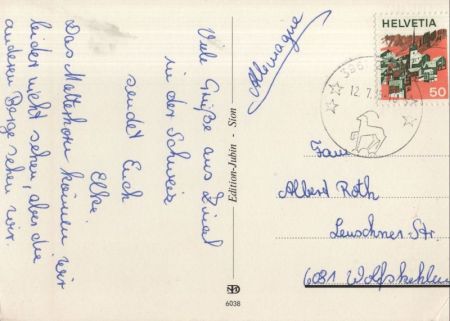 Viele Grüße aus Zinal
in der Schweiz
sendet Euch
Elke.
Das Matterhorn können wir
leider nicht sehen, aber die
anderen Berge sehen wir.
Edition-Jubin - Sion
6038
Allemagne
HELVETIA
50
12.7.
Fam.
Albert Roth
Leuschner Str.
6081 Wolfskehlen